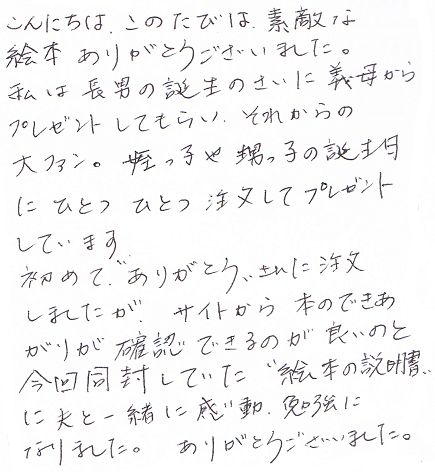 こんにちは、このたびは、素敵な
絵本 ありがとうございました。
私は 長男の誕生のさいに 義母から
プレゼントしてもらい、それからの
大ファン。 姪っ子や 甥っ子の誕生日
に ひとつ ひとつ 注文してプレゼント
しています
初めて、"ありがとう"さんに注文
しましたが、 サイトから 本のできあ
がりが 確認 できるのが 良いのと
今回同封していた "絵本の説明書"
に 夫と一緒に 感動、勉強に
なりました。 ありがとうございました。